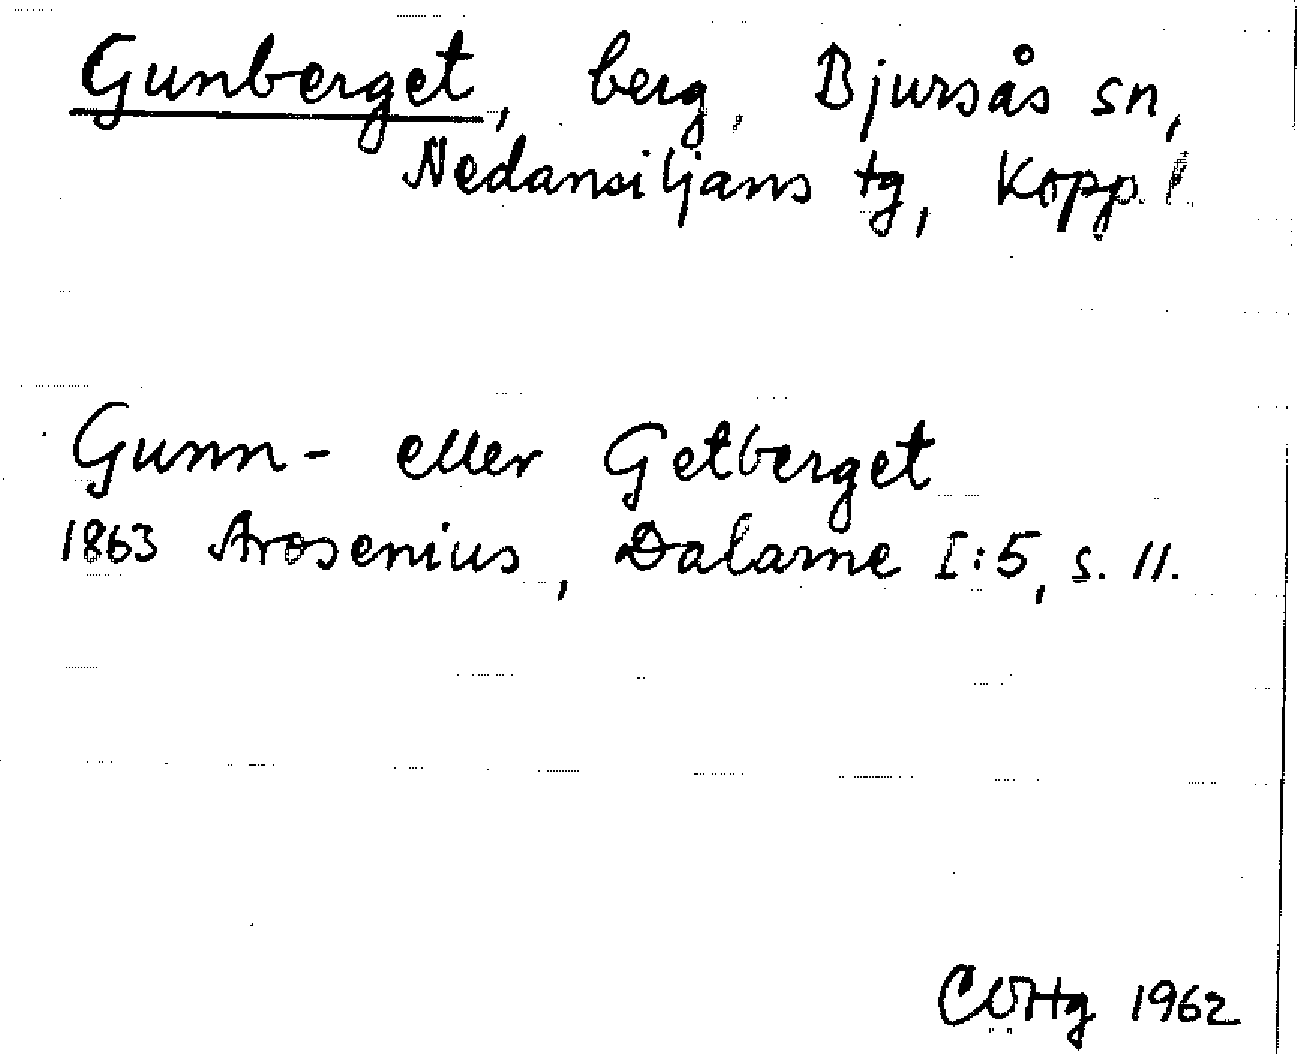 Gunberget, berg, Bjursås sn,
Nedansiljans tg, Kopp. l.
Gunn- eller Getberget
1863 Arosenius, Dalarne I:5, s. 11.
1962